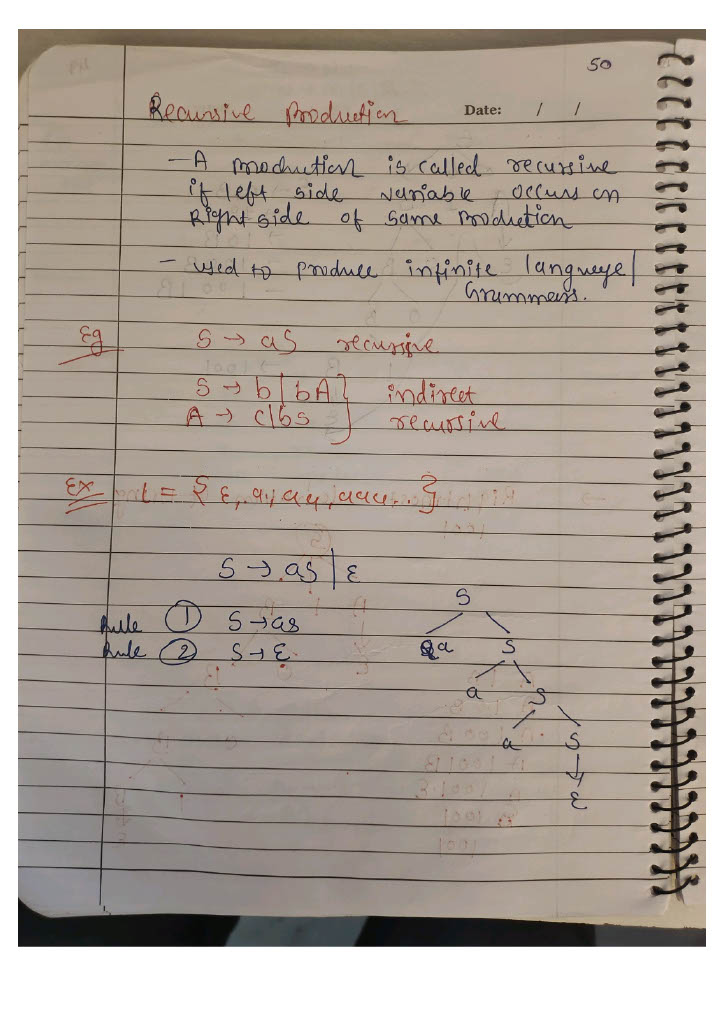 50
Recursive Production Date: / /
– A production is called recursive
if left side variable occurs on
Right side of same production
– used to produce infinite langueye/
Grammers.
Eg S → aS recursive
S → b | bA } indirect
A → c|bs } recursive
Ex L = { ε, a, aa, aaa, .. }
S → as | ε
Rule ① S → as
Rule ② S → ε
S
a S
a S
a S
↓
ε